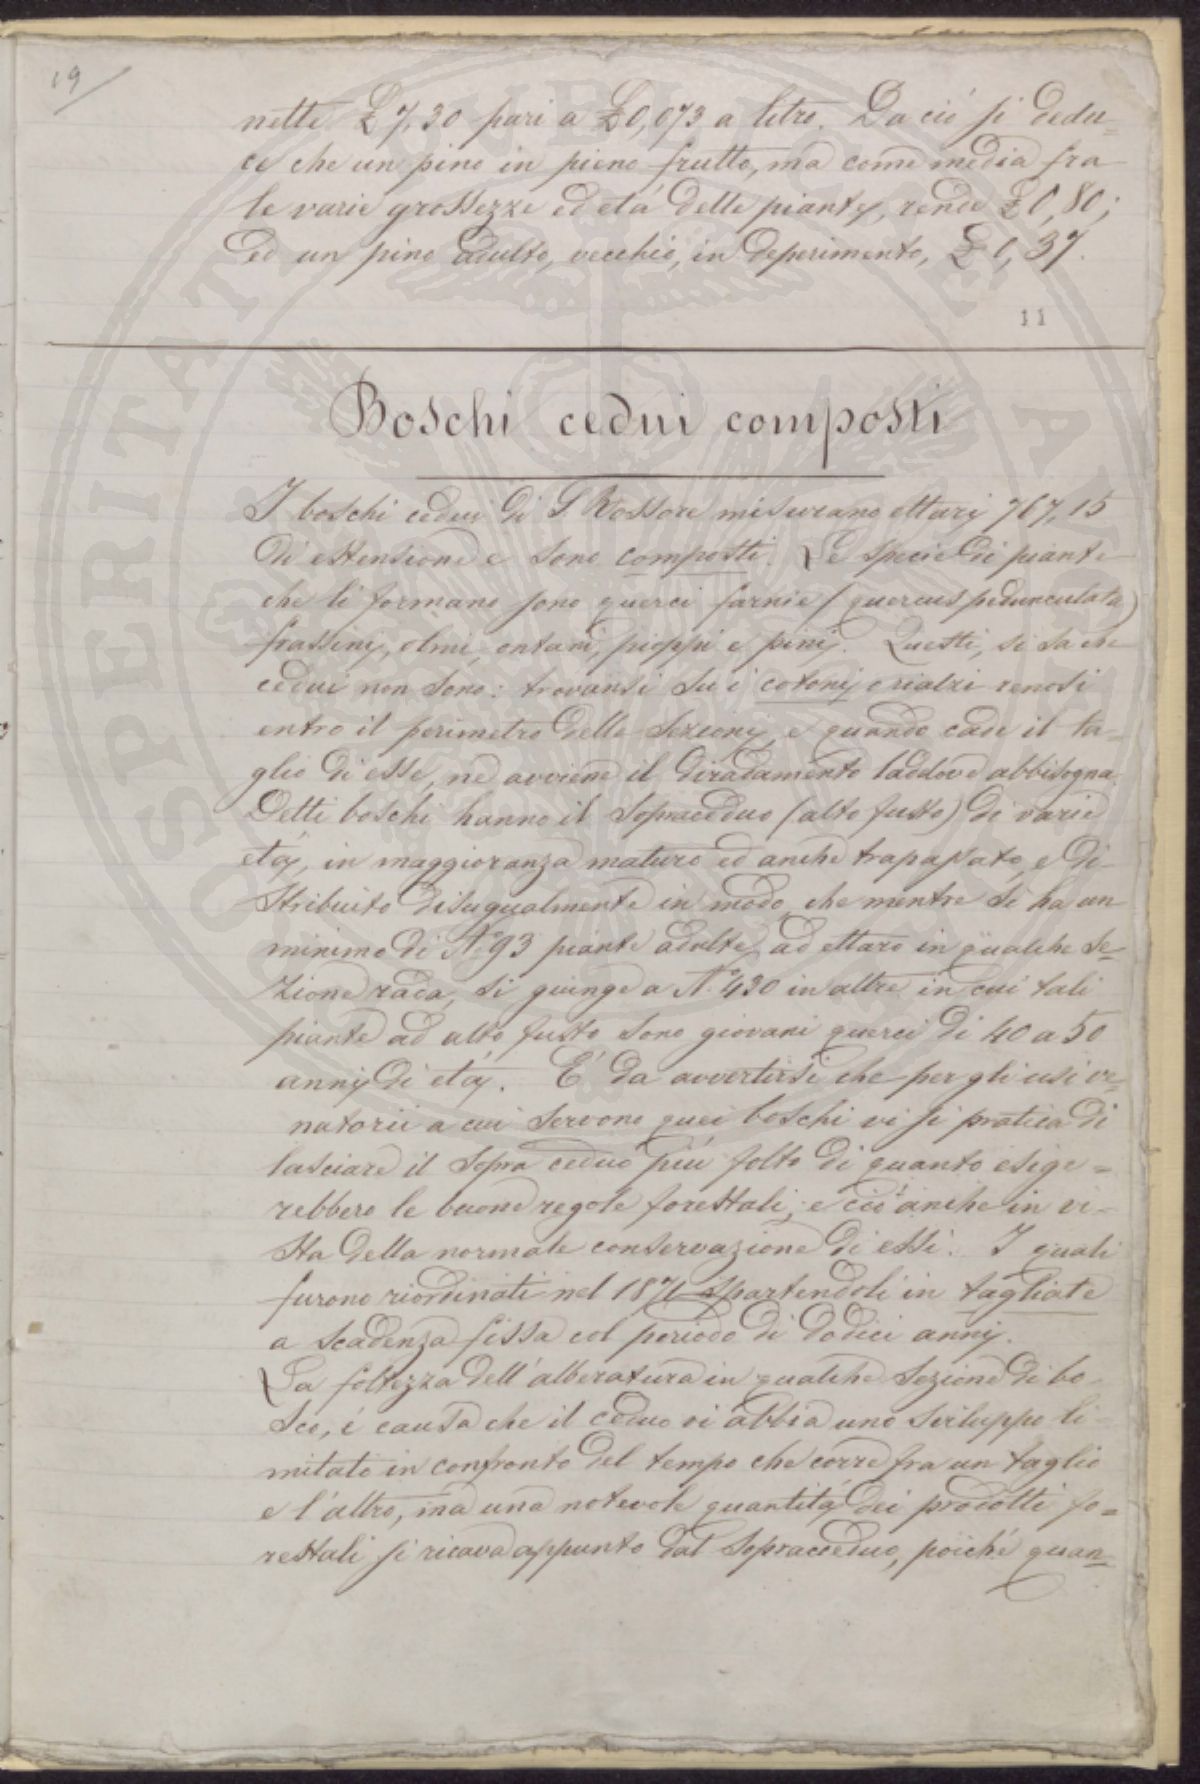 19
nette £ 7,30 pari a £0,073 a litro. Da ciò si dedu-
ce che un pino in pieno frutto, ma come media fra
le varie grossezze ed età delle piante, rende £0,80;
ed un pino adulto, vecchio, in deperimento, £ 0,37.
11
Boschi cedui composti
I boschi cedui di S Rossore misurano ettari 767,15
di estensione e sono composti. Le specie di piante
che li formano sono querci farnie (quercus pedunculata)
frassini, olmi, ontani, pioppi e pini. Questi, si sa che
cedui non sono: trovansi su i cotoni o rialzi renosi
entro il perimetro delle Sezioni, e quando cade il ta=
glio di esse, ne avviene il diradamento laddove abbisogna.
Detti boschi hanno il Sopraceduo (alto fusto) di varie
età, in maggioranza maturo ed anche trapassato, e di-
stribuito disugualmente in modo, che mentre si ha un
minimo di N° 93 piante adulte ad ettaro in qualche Se=
zione rada, si giunge a N° 430 in altre in cui tali
piante ad alto fusto sono giovani querci di 40 a 50
anni di età. E' da avvertirsi che per gli usi ve=
natorii a cui servono quei boschi vi si pratica di
lasciare il Sopra ceduo più folto di quanto esige=
rebbero le buone regole forestali; e ciò anche in vi=
sta della normale conservazione di essi. I quali
furono riordinati nel 1871 spartendoli in tagliate
a scadenza fissa col periodo di dodici anni.
La foltezza dell'alberatura in qualche Sezione di bo-
sco, è causa che il ceduo vi abbia uno sviluppo li-
mitato in confronto del tempo che corre fra un taglio
e l'altro, ma una notevole quantità dei prodotti fo=
restali si ricava appunto dal Sopraceduo, poichè quan=
SOSPERITATE PUBLICAE AUG